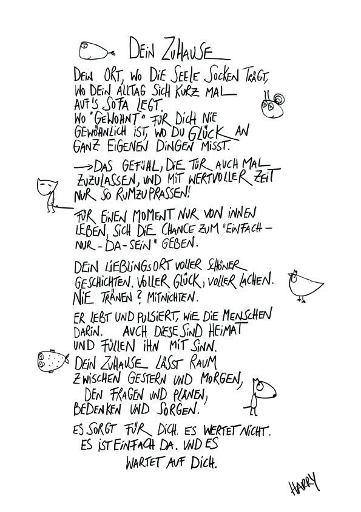 DEIN ZUHAUSE
DEIN ORT, WO DIE SEELE SOCKEN TRÄGT,
WO DEIN ALLTAG SICH KURZ MAL
AUF!S SOFA LEGT.
WO "GEWOHNT" FÜR DICH NIE
GEWÖHNLICH IST, WO DU GLÜCK AN
GANZ EIGENEN DINGEN MISST.
→DAS GEFÜHL, DIE TÜR AUCH MAL
ZUZULASSEN, UND MIT WERTVOLLER ZEIT
NUR SO RUMZUPRASSEN!
FÜR EINEN MOMENT NUR VON INNEN
LEBEN, SICH DIE CHANCE ZUM "EINFACH-
NUR-DA-SEIN" GEBEN.
DEIN LIEBLINGSORT VOLLER SCHÖNER
GESCHICHTEN. VOLLER GLÜCK, VOLLER LACHEN.
NIE TRÄNEN? MITNICHTEN.
ER LEBT UND PULSIERT, WIE DIE MENSCHEN
DARIN. AUCH DIESE SIND HEIMAT
UND FÜLLEN IHN MIT SINN.
DEIN ZUHAUSE LÄSST RAUM
ZWISCHEN GESTERN UND MORGEN,
DEN FRAGEN UND PLÄNEN,
BEDENKEN UND SORGEN.
ES SORGT FÜR DICH. ES WERTET NICHT.
ES IST EINFACH DA. UND ES
WARTET AUF DICH.
HARRY